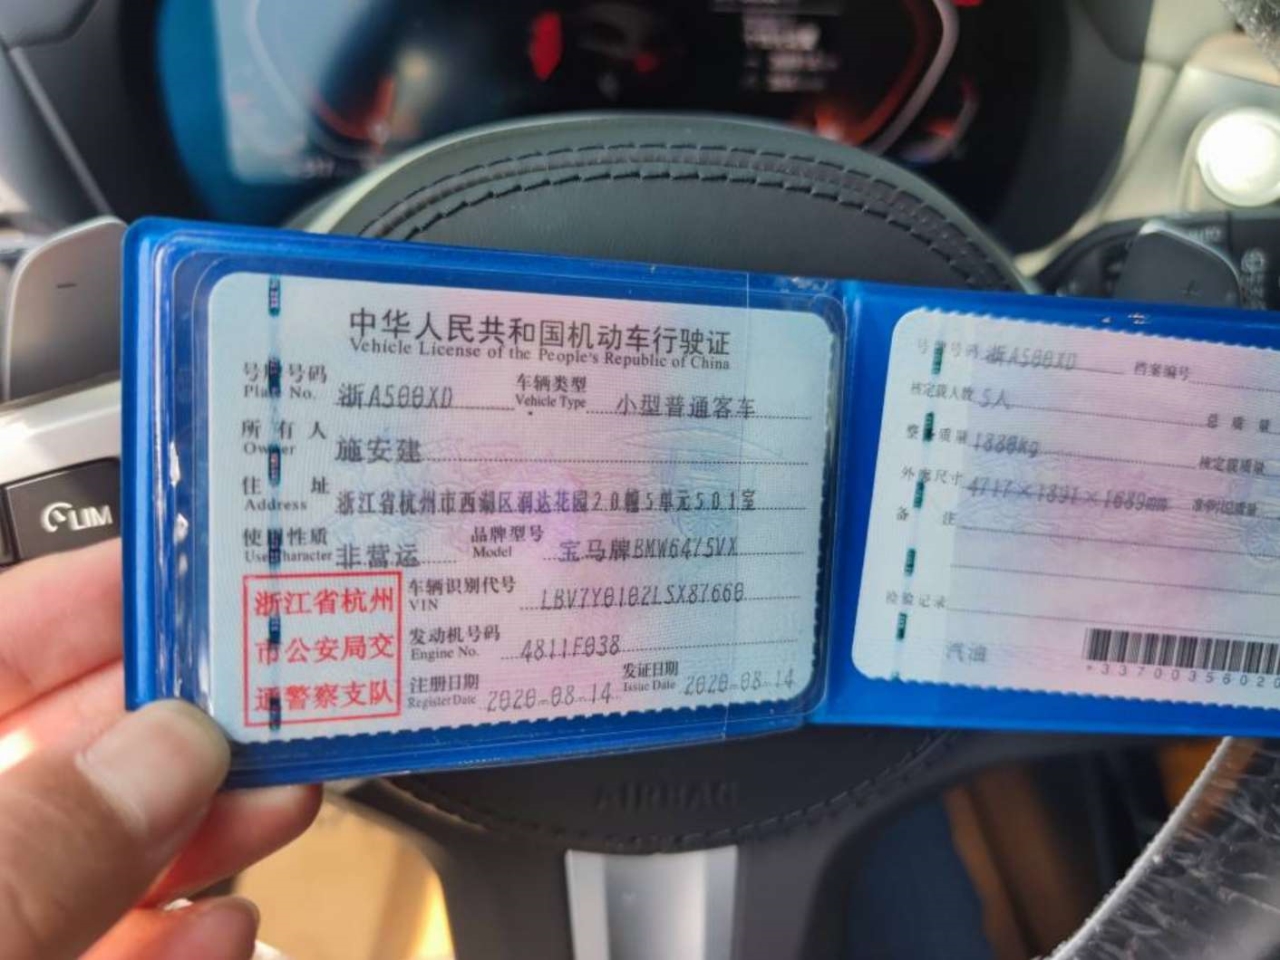 中华人民共和国机动车行驶证
Vehicle License of the People's Republic of China
号牌号码 浙A500XD 车辆类型 小型普通客车
Plate No. Vehicle Type
所有人 施安建
Owner
住址 浙江省杭州市西湖区润达花园20幢5单元501室
Address
使用性质 非营运 品牌型号 宝马牌BMW6475VX
Use Character Model
浙江省杭州
市公安局交
通警察支队
车辆识别代号 LBV7Y0102LSX87660
VIN
发动机号码 4811F038
Engine No.
注册日期 2020-08-14 发证日期 2020-08-14
Register Date Issue Date
号牌号码 浙A500XD 档案编号
核定载人数 5人 总质量
整备质量 1880kg 核定载质量
外廓尺寸 4717×1891×1689mm
备注
检验记录
汽油
*33700356020
LIM
AIRBAG
AUTO